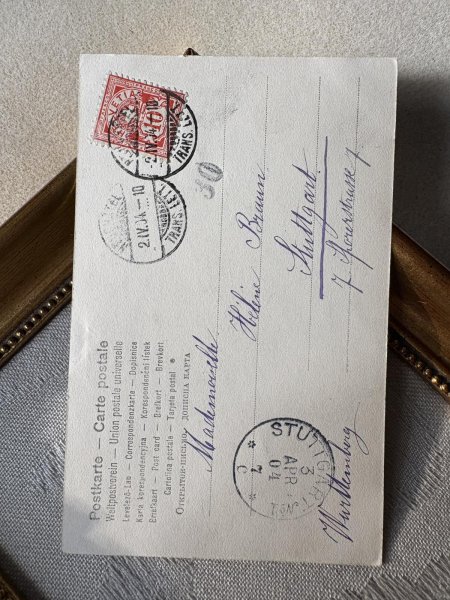 Postkarte — Carte postale
Weltpostverein — Union postale universelle
Levelező-Lap — Correspondenzkarte — Dopisnice
Karta korespondencyjna — Korespondenční lístek
Briefkaart — Post card — Brefkort — Brevkort
Cartolina postale — Tarjeta postal
Mademoiselle
Hélène Braun
Stuttgart
7
Württemberg
10
2.IV.04.-10
TRANS. LET
2.IV.04.-10
TRANS. LETT
STUTTGART No.1
3
APR
04
7